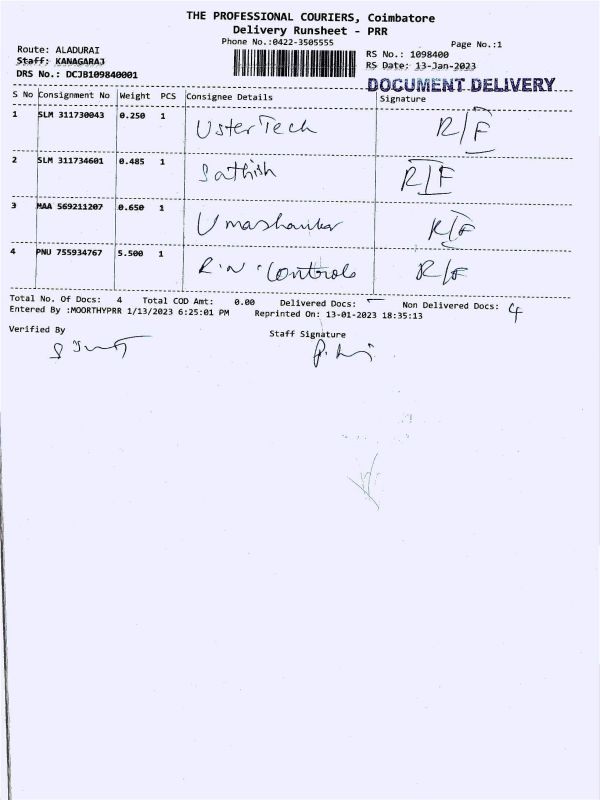 THE PROFESSIONAL COURIERS, Coimbatore
Delivery Runsheet - PRR
Phone No.:0422-3505555
Page No.:1
Route: ALADURAI
RS No.: 1098400
Staff: KANAGARAJ
RS Date: 13-Jan-2023
DRS No.: DCJB109840001
DOCUMENT DELIVERY
S No Consignment No Weight PCS Consignee Details Signature
1 SLM 311730043 0.250 1 Uster Tech R/F
2 SLM 311734601 0.485 1 Sathish R/F
3 MAA 569211207 0.650 1 Umashankar R/F
4 PNU 755934767 5.500 1 R.N. Controls R/F
Total No. Of Docs: 4 Total COD Amt: 0.00 Delivered Docs: – Non Delivered Docs: 4
Entered By :MOORTHYPRR 1/13/2023 6:25:01 PM Reprinted On: 13-01-2023 18:35:13
Verified By Staff Signature